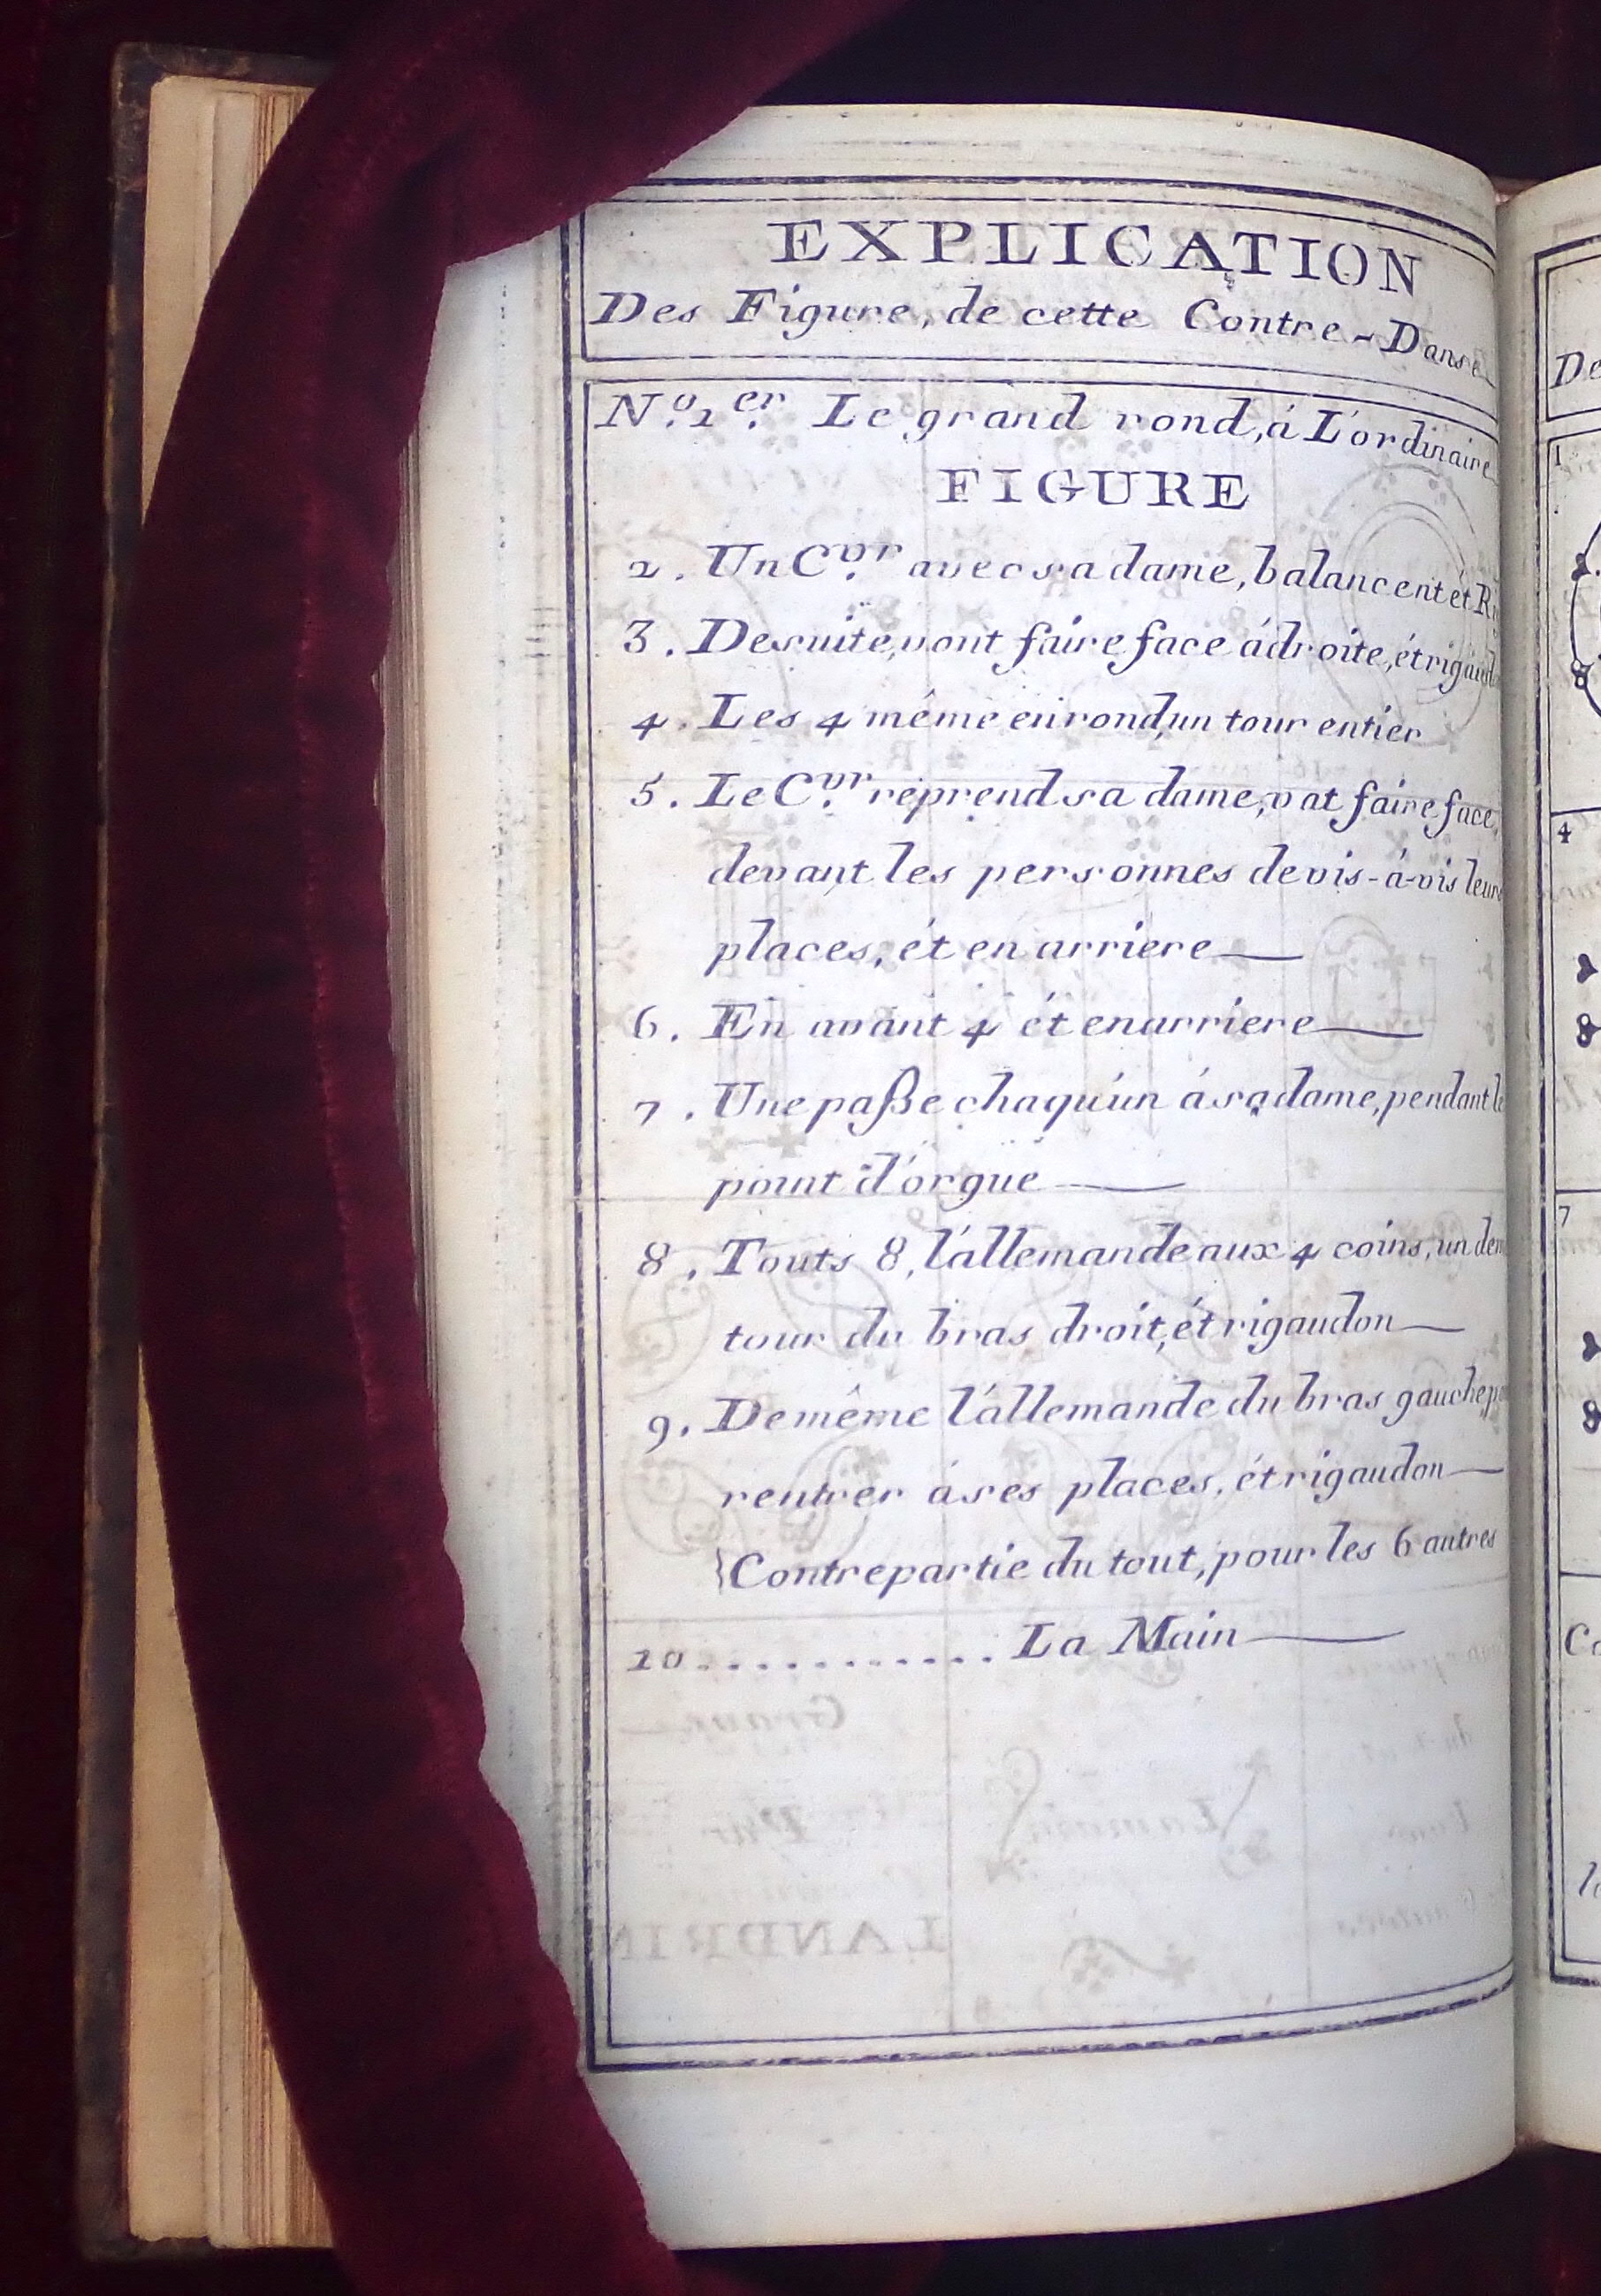 EXPLICATION
Des Figure, de cette Contre-Danse
N.º 1.er Le grand rond, á L'ordinaire
FIGURE
2. Un C.vr avec sa dame, balancent ét
3. De suite, vont faire face á droite, ét rigaudon
4. Les 4 même en rond, un tour entier
5. Le C.vr réprend sa dame, vat faire face,
devant les personnes de vis-á-vis leurs
places, ét en arriere
6. En avant 4 ét en arriere
7. Une paße chaqu'un á sa dame, pendant le
point d'orgue
8. Touts 8, l'allemande aux 4 coins, un demi
tour du bras droit, ét rigaudon
9. De même l'allemande du bras gauche
rentrer á ses places, ét rigaudon
Contrepartie du tout, pour les 6 autres
10 ............ La Main
De
1
4
7
LANDRIN